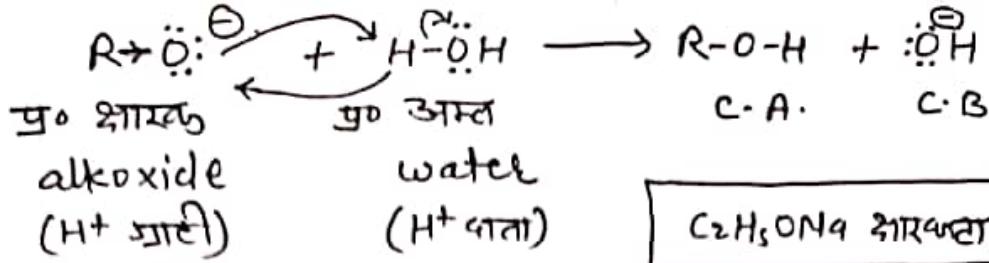 R→Ö:⊖ + H-ÖH ⟶ R-O-H + :ÖH⊖
प्र० क्षारक प्र० अम्ल C.A. C.B
alkoxide water
(H+ ग्राही) (H+ दाता) C₂H₅ONa क्षारकता